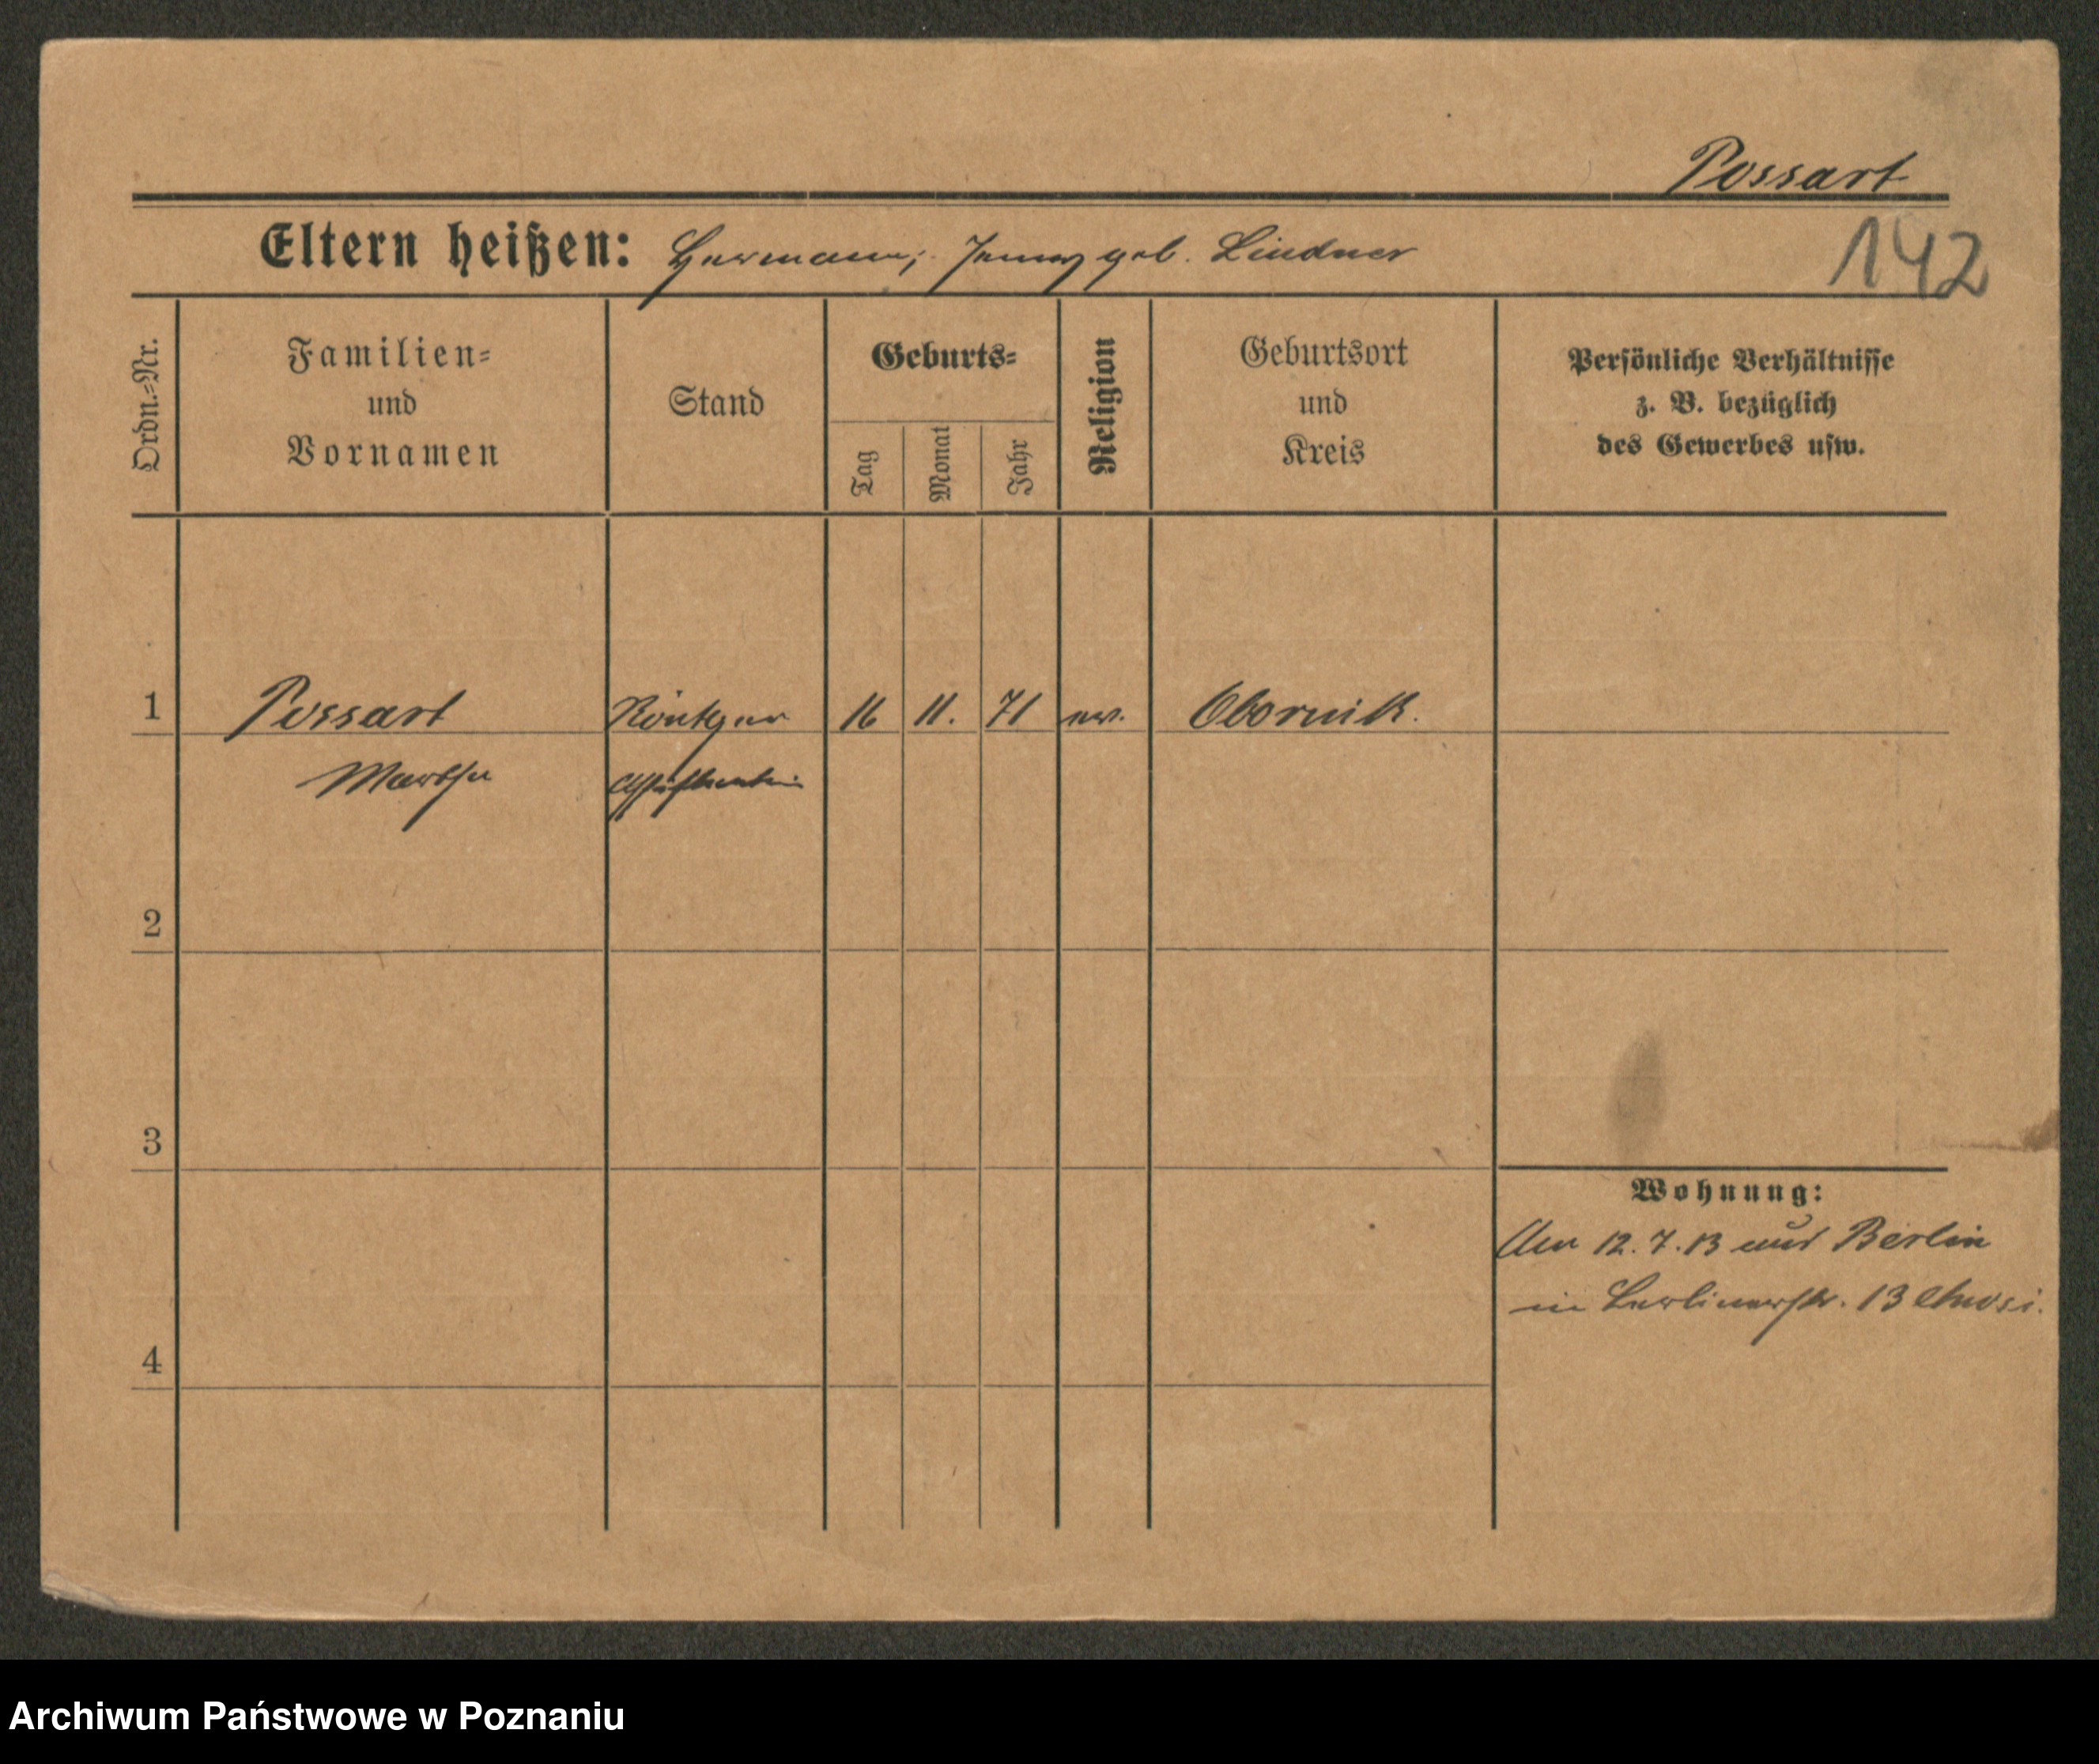 Possart
Eltern heißen: Hermann; Jenny geb. Lindner
142
Ordn.=Nr.
Familien=
und
Vornamen
Stand
Geburts=
Tag
Monat
Jahr
Religion
Geburtsort
und
Kreis
Persönliche Verhältnisse
z. B. bezüglich
des Gewerbes usw.
1 Possart Röntgen 16 11. 71 ev. Obornik.
Martha Assistentin
2
3
Wohnung:
Am 12.7.13 aus Berlin
in Berlinerstr. 13
4
Archiwum Państwowe w Poznaniu